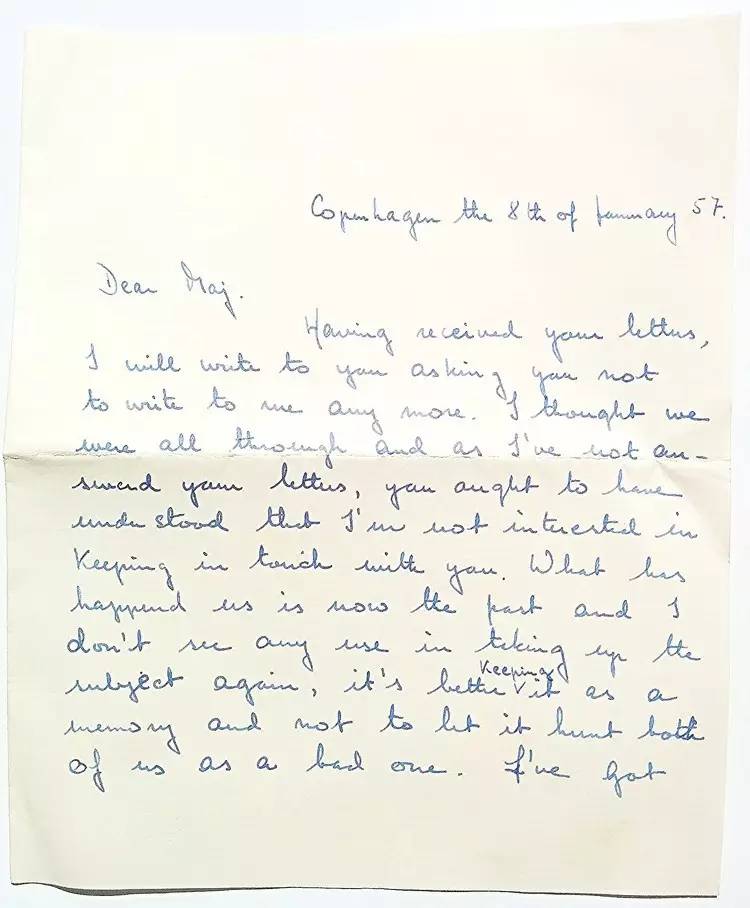 Copenhagen the 8th of January 57.
Dear Maj.
Having received your letters,
I will write to you asking you not
to write to me any more. I thought we
were all through and as I've not an-
swerd your letters, you aught to have
understood that I'm not interested in
Keeping in touch with you. What has
happend us is now the past and I
don't see any use in teking up the
subject again, it's better Keeping it as a
memory and not to let it hunt both
of us as a bad one. I've got